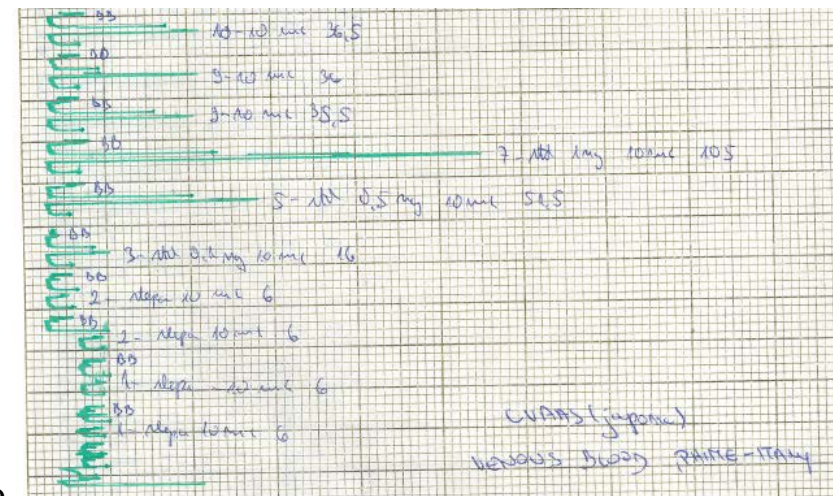 BB
10-10 mc 36,5
BB
9-10 mc 36
BB
9-10 mc 35,5
BB
7- std 1mg 10mc 105
BB
5- std 0,5 mg 10mc 51,5
BB
3- std 10 mc 16
BB
2- slepa 10 mc 6
BB
2- slepa 10mc 6
BB
1- slepa 10 mc 6
BB
1- slepa 10mc 6
CVAAS (japonic)
VENOUS BLOOD PHIME-ITALY